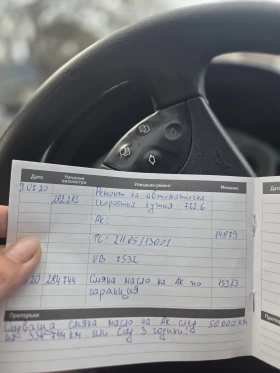 Дата Начални километри Извършен ремонт Механик
9.07.20 282281 Ремонт на автоматична
скоростна кутия 722.6
Ак:
14879
VB 7532
20 284744 Смяна масло на Ак по 15313
гаранция
Препоръки
Следваща смяна масло на Ак след 50.000 км
на 334 744 км или след 3 години!